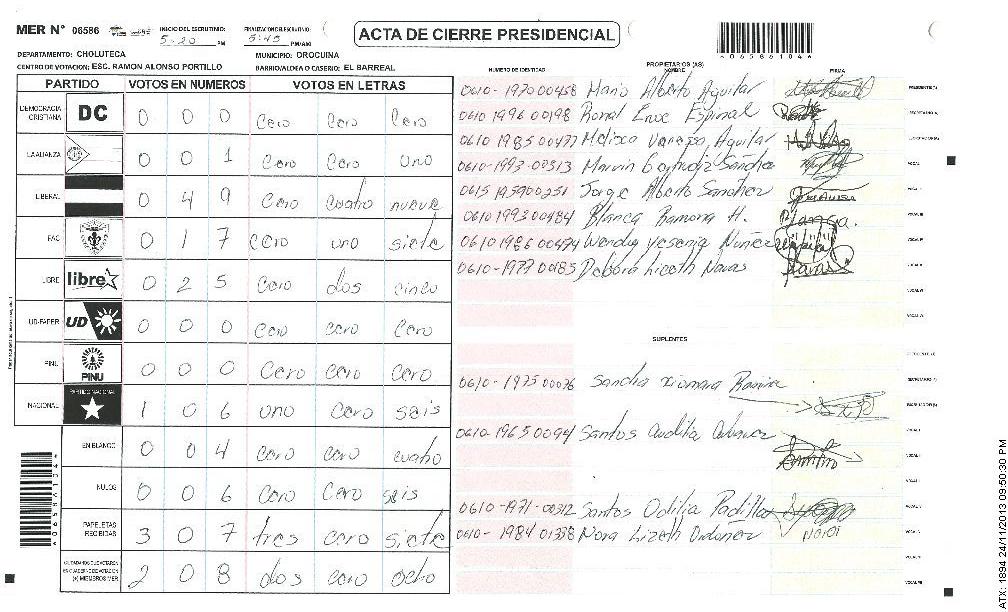 MER Nº 06586 INICIO DEL ESCRUTINIO: 5:20 PM FINALIZACION DEL ESCRUTINIO: 5:45 PM/AM
ACTA DE CIERRE PRESIDENCIAL
DEPARTAMENTO: CHOLUTECA MUNICIPIO: OROCUINA
CENTRO DE VOTACION: ESC. RAMON ALONSO PORTILLO BARRIO/ALDEA O CASERIO: EL BARREAL
PARTIDO VOTOS EN NUMEROS VOTOS EN LETRAS
DEMOCRACIA CRISTIANA DC 0 0 0 Cero Cero Cero
LA ALIANZA 0 0 1 Cero Cero uno
LIBERAL 0 4 9 Cero cuatro nueve
PAC 0 1 7 Cero uno siete
LIBRE libre 0 2 5 Cero dos cinco
UD-FAPER UD 0 0 0 Cero cero Cero
PINU PINU 0 0 0 Cero Cero Cero
NACIONAL PARTIDO NACIONAL 1 0 6 uno Cero seis
EN BLANCO 0 0 4 Cero cero cuatro
NULOS 0 0 6 Cero Cero seis
PAPELETAS RECIBIDAS 3 0 7 tres cero siete
CIUDADANOS QUE VOTARON EN CUADERNO DE VOTACION (+) MIEMBROS MER 2 0 8 dos cero ocho
NUMERO DE IDENTIDAD PROPIETARIOS (AS) NOMBRE FIRMA
0610-1970 00458 Mario Alberto Aguilar
0610 1996 00198 Ronal
0610 1985 00477 Melissa Vanessa Aguilar
0610-1993-00313 Marvin Sanchez
0615 1959 00251 Jorge Alberto Sanchez
0610 1993 00484 Blanca Ramona H.
0610 1986 00474 Wendy Yesenia Nuñez
0610-1977 00185 Debora Lizeth Navas
SUPLENTES
0610-1975 00076 Sandra Xiomara
0610-1965 0094 Santos
0610-1971-00312 Santos Odilia Padilla
0610-1984 01358 Nora Lizeth Ordoñez
ATX: 1894 24/11/2013 09:50:30 PM